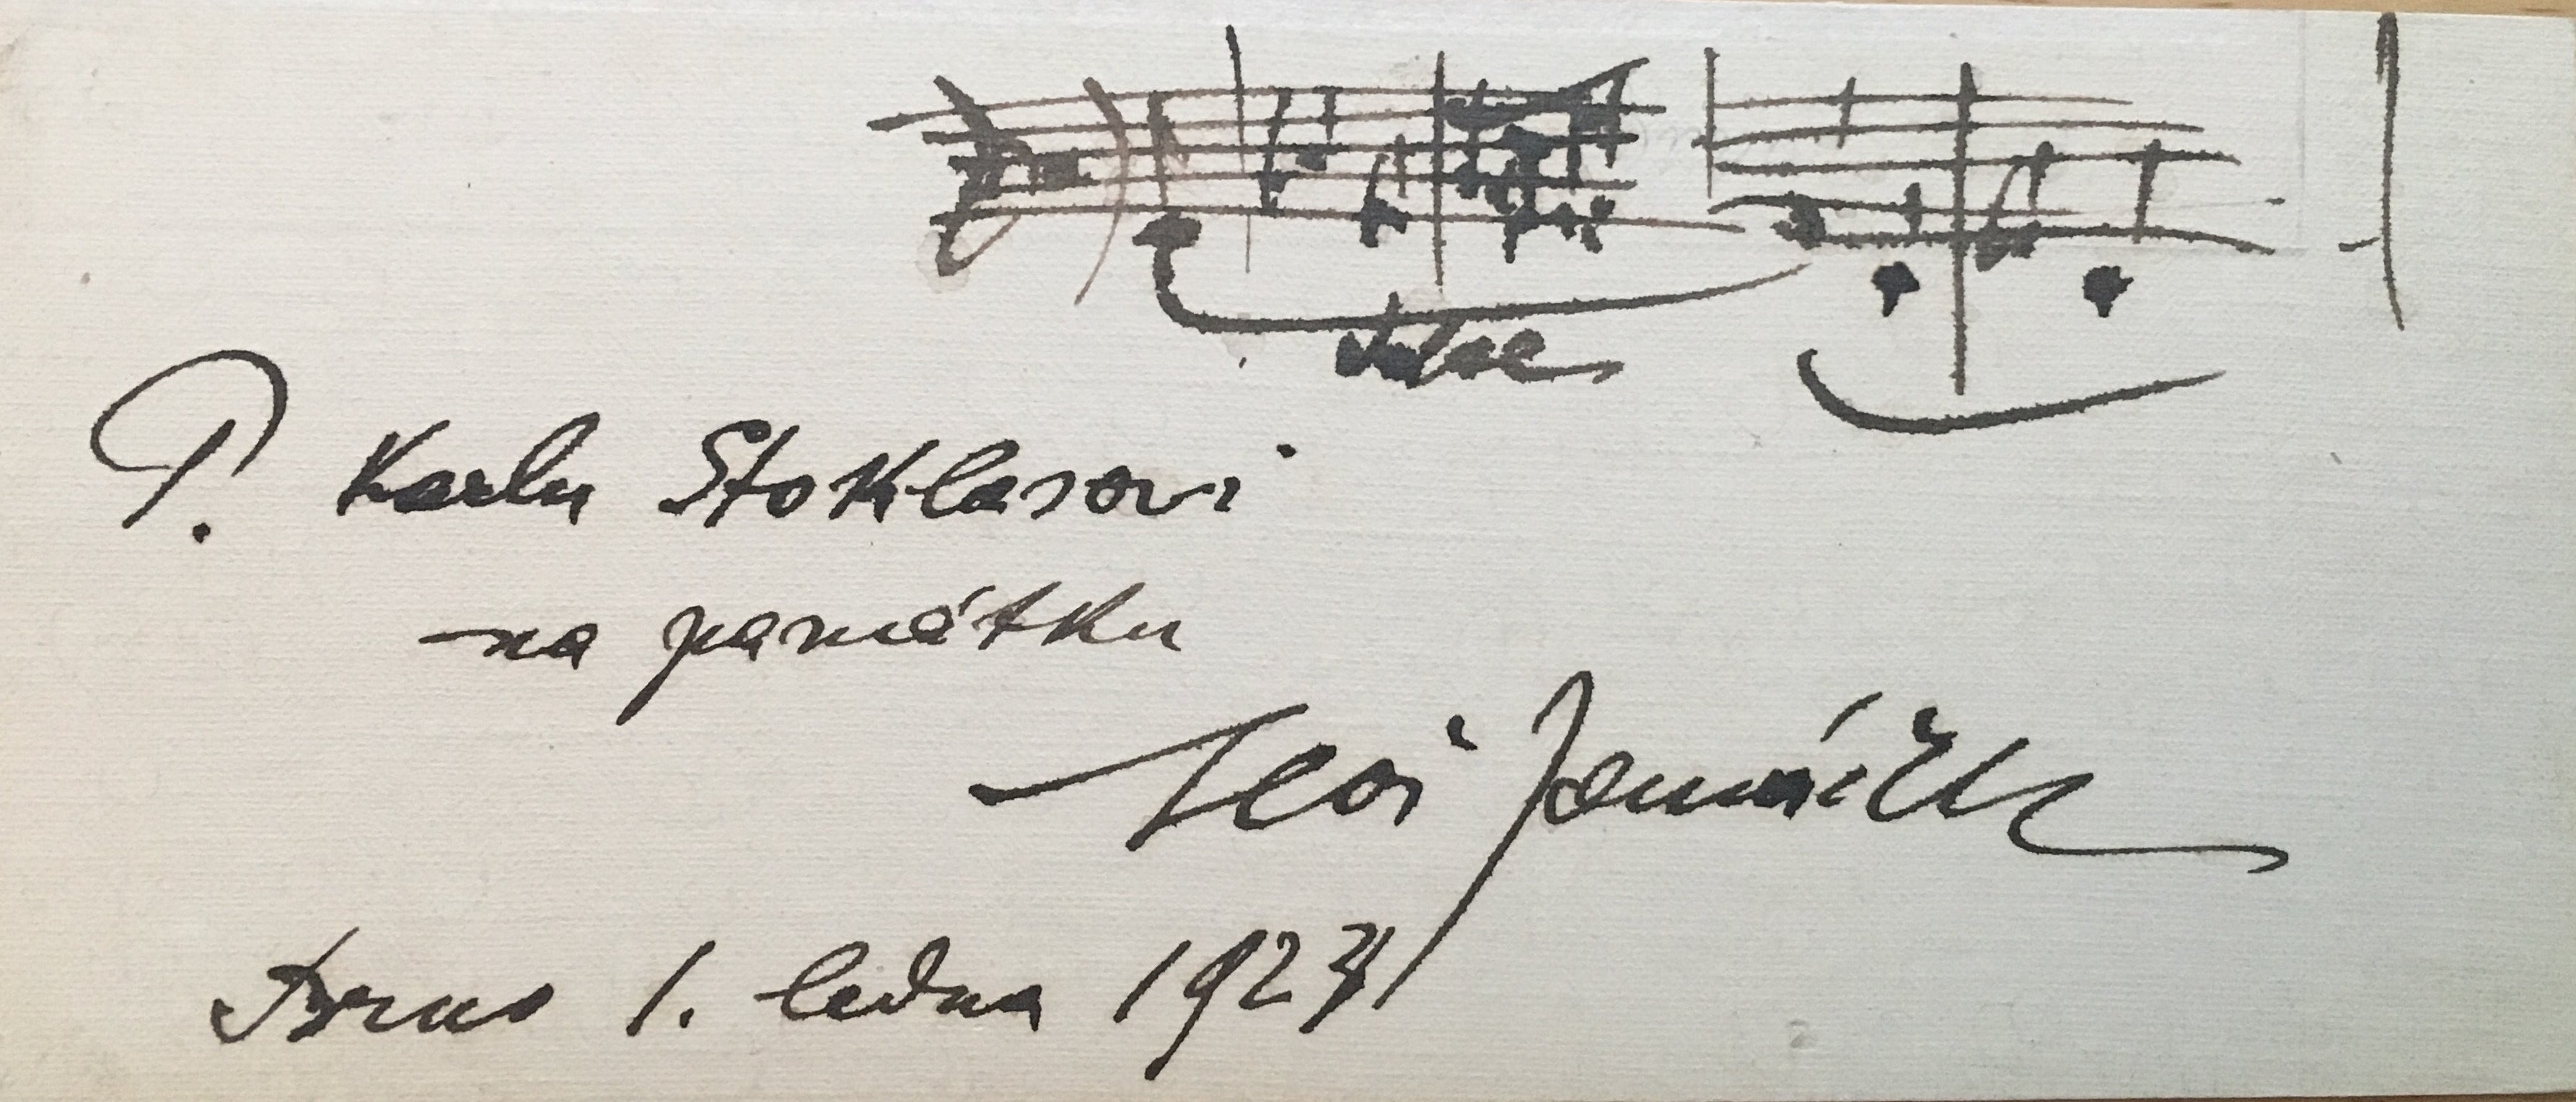 P. Karlu Stoklasovi
na památku
Leoš Janáček
Brno 1. ledna 1924